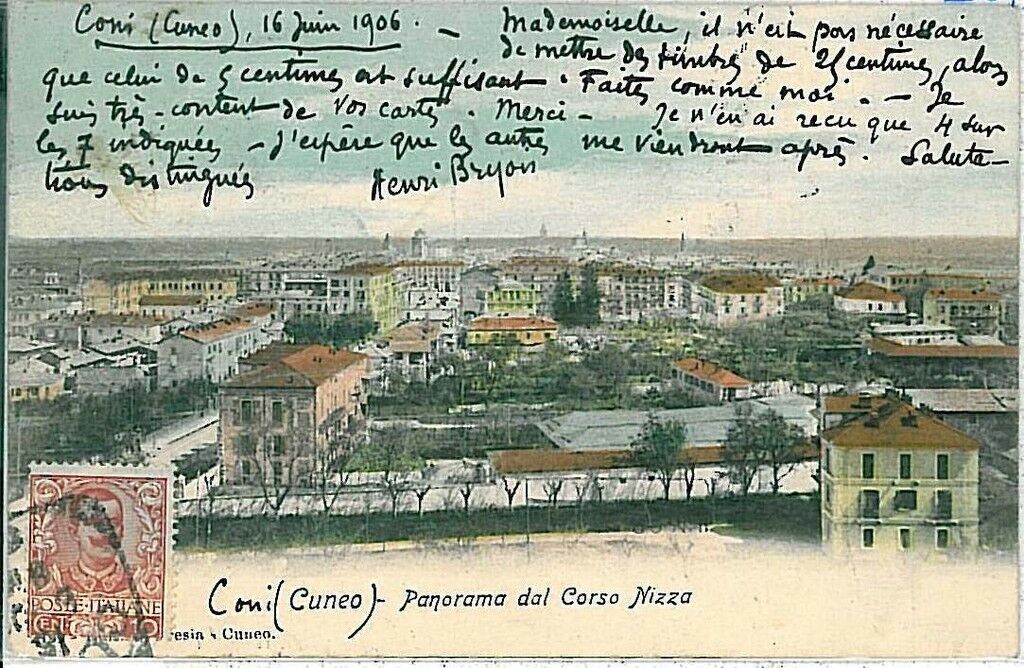 Coni (Cuneo), 16 Juin 1906. — Mademoiselle, il n'est pas nécessaire
de mettre des timbres de 25 centimes, alors
que celui de 5 centimes est suffisant. Faites comme moi. — Je
suis très-content de vos cartes. Merci — Je n'en ai reçu que 4 sur
les 7 indiquées — J'espère que les autres me viendront après. Saluta-
tions distinguées Henri Bryon
POSTE·ITALIANE
10
Coni (Cuneo) - Panorama dal Corso Nizza
resia - Cuneo.